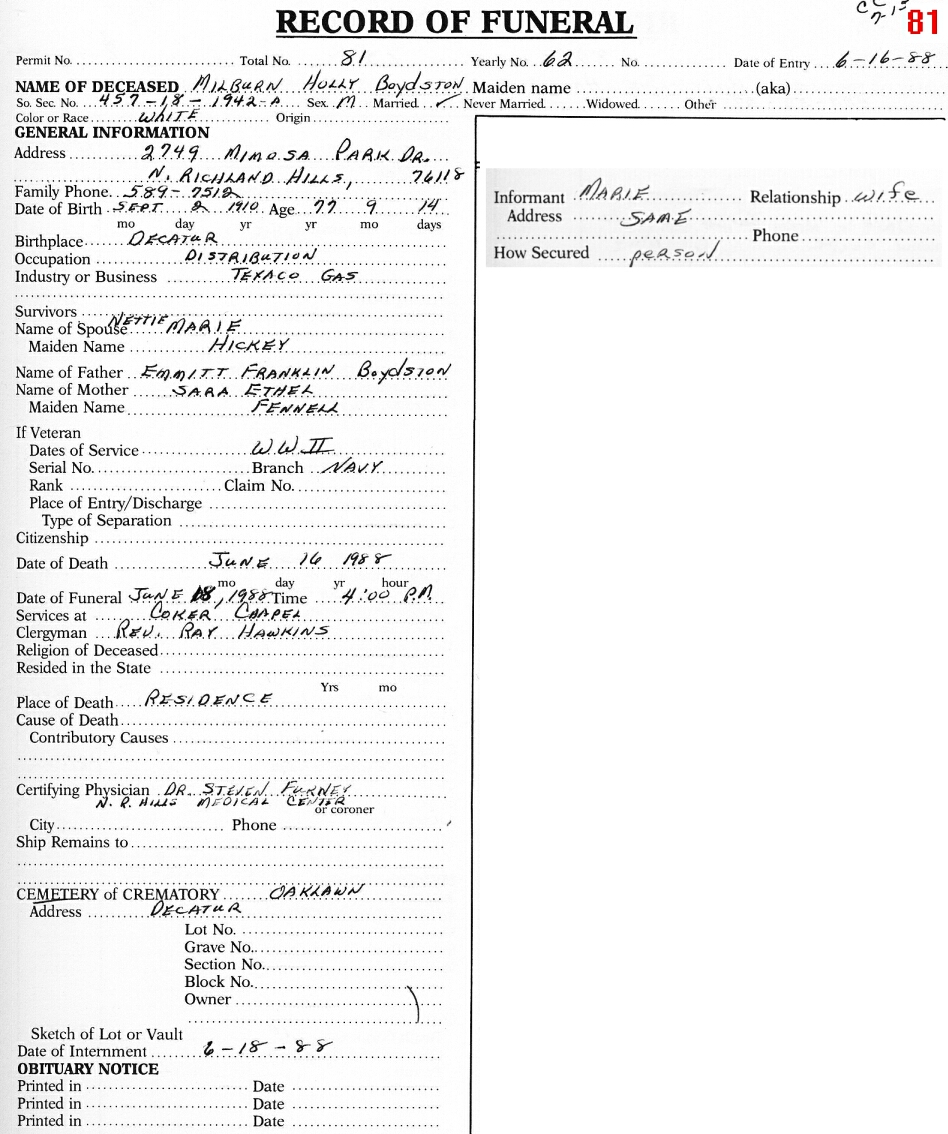 RECORD OF FUNERAL
81
Permit No. Total No. 81 Yearly No. 62 No. Date of Entry 6-16-88
NAME OF DECEASED MILBURN HOLLY BOYDSTON Maiden name (aka)
So. Sec. No. 457-18-1942-A Sex M Married ✓ Never Married Widowed Other
Color or Race WHITE Origin
GENERAL INFORMATION
Address 2749 MIMOSA PARK DR.
N. RICHLAND HILLS, 76118
Family Phone 589-7512
Date of Birth SEPT 2 1910 Age 77 9 14
mo day yr yr mo days
Birthplace DECATUR
Occupation DISTRIBUTION
Industry or Business TEXACO GAS
Survivors
Name of Spouse NETTIE MARIE
Maiden Name HICKEY
Name of Father EMMITT FRANKLIN BOYDSTON
Name of Mother SARA ETHEL
Maiden Name FENNELL
If Veteran
Dates of Service WW II
Serial No. Branch NAVY
Rank Claim No.
Place of Entry/Discharge
Type of Separation
Citizenship
Date of Death JUNE 16 1988
mo day yr hour
Date of Funeral JUNE 18, 1988 Time 4:00 P.M.
Services at COKER CHAPEL
Clergyman REV. RAY HAWKINS
Religion of Deceased
Resided in the State
Yrs mo
Place of Death RESIDENCE
Cause of Death
Contributory Causes
Certifying Physician DR. STEVEN FURNEY
N. R. HILLS MEDICAL CENTER
or coroner
City Phone
Ship Remains to
CEMETERY of CREMATORY OAKLAWN
Address DECATUR
Lot No.
Grave No.
Section No.
Block No.
Owner
Sketch of Lot or Vault
Date of Internment 6-18-88
OBITUARY NOTICE
Printed in Date
Printed in Date
Printed in Date
Informant MARIE Relationship wife
Address SAME
Phone
How Secured person